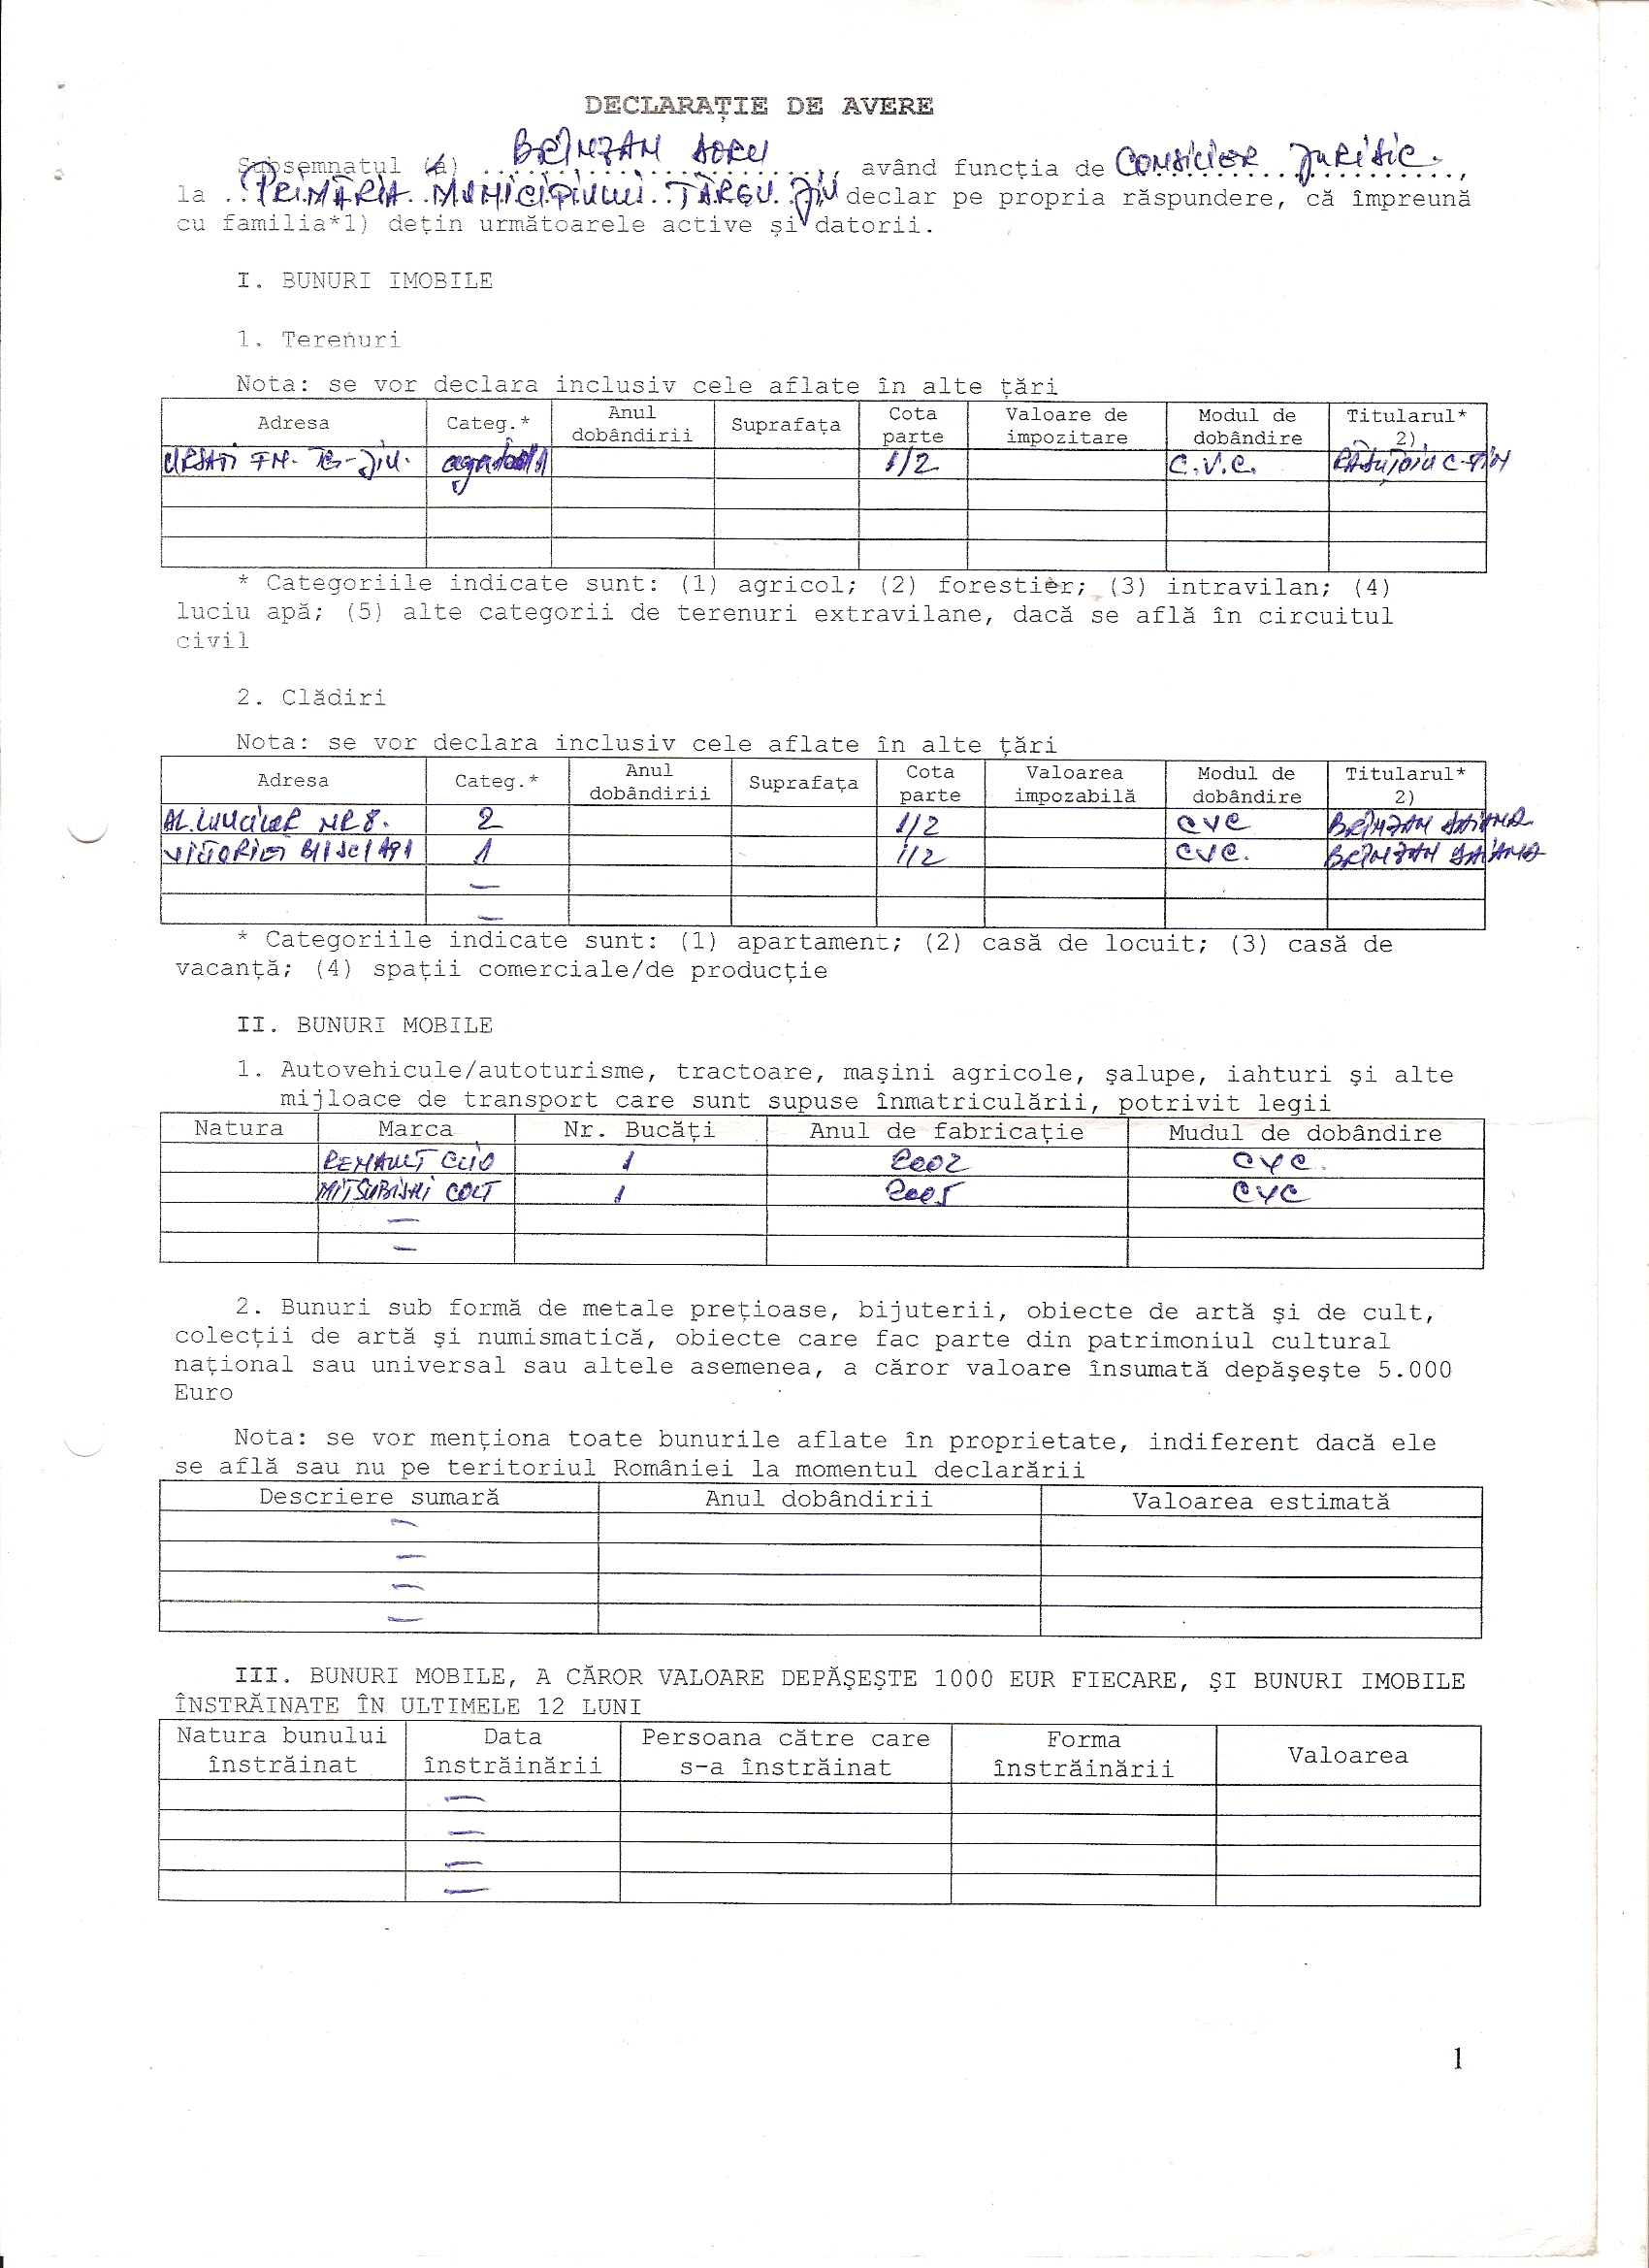 DECLARAȚIE DE AVERE
Subsemnatul (a) BRÎNZAN DORU, având funcția de CONSILIER JURIDIC.,
la PRIMĂRIA MUNICIPIULUI TÂRGU JIU declar pe propria răspundere, că împreună
cu familia*1) dețin următoarele active și datorii.
I. BUNURI IMOBILE
1. Terenuri
Nota: se vor declara inclusiv cele aflate în alte țări
Adresa Categ.* Anul dobândirii Suprafața Cota parte Valoare de impozitare Modul de dobândire Titularul* 2)
URSAȚI TG-JIU. 1/2 C.V.C. RĂDUȚOIU C-TIN
* Categoriile indicate sunt: (1) agricol; (2) forestier; (3) intravilan; (4)
luciu apă; (5) alte categorii de terenuri extravilane, dacă se află în circuitul
civil
2. Clădiri
Nota: se vor declara inclusiv cele aflate în alte țări
Adresa Categ.* Anul dobândirii Suprafața Cota parte Valoarea impozabilă Modul de dobândire Titularul* 2)
AL. LUNCILOR NR 8. 2 1/2 CVC BRÎNZAN DAIANA
VICTORIEI 1 1/2 CVC. BRÎNZAN DAIANA
—
—
* Categoriile indicate sunt: (1) apartament; (2) casă de locuit; (3) casă de
vacanță; (4) spații comerciale/de producție
II. BUNURI MOBILE
1. Autovehicule/autoturisme, tractoare, mașini agricole, șalupe, iahturi și alte
mijloace de transport care sunt supuse înmatriculării, potrivit legii
Natura Marca Nr. Bucăți Anul de fabricație Mudul de dobândire
RENAULT CLIO 1 2002 CVC.
MITSUBISHI COLT 1 2005 CVC
—
—
2. Bunuri sub formă de metale prețioase, bijuterii, obiecte de artă și de cult,
colecții de artă și numismatică, obiecte care fac parte din patrimoniul cultural
național sau universal sau altele asemenea, a căror valoare însumată depășește 5.000
Euro
Nota: se vor menționa toate bunurile aflate în proprietate, indiferent dacă ele
se află sau nu pe teritoriul României la momentul declarării
Descriere sumară Anul dobândirii Valoarea estimată
—
—
—
—
III. BUNURI MOBILE, A CĂROR VALOARE DEPĂȘEȘTE 1000 EUR FIECARE, ȘI BUNURI IMOBILE
ÎNSTRĂINATE ÎN ULTIMELE 12 LUNI
Natura bunului înstrăinat Data înstrăinării Persoana către care s-a înstrăinat Forma înstrăinării Valoarea
—
—
—
—
1